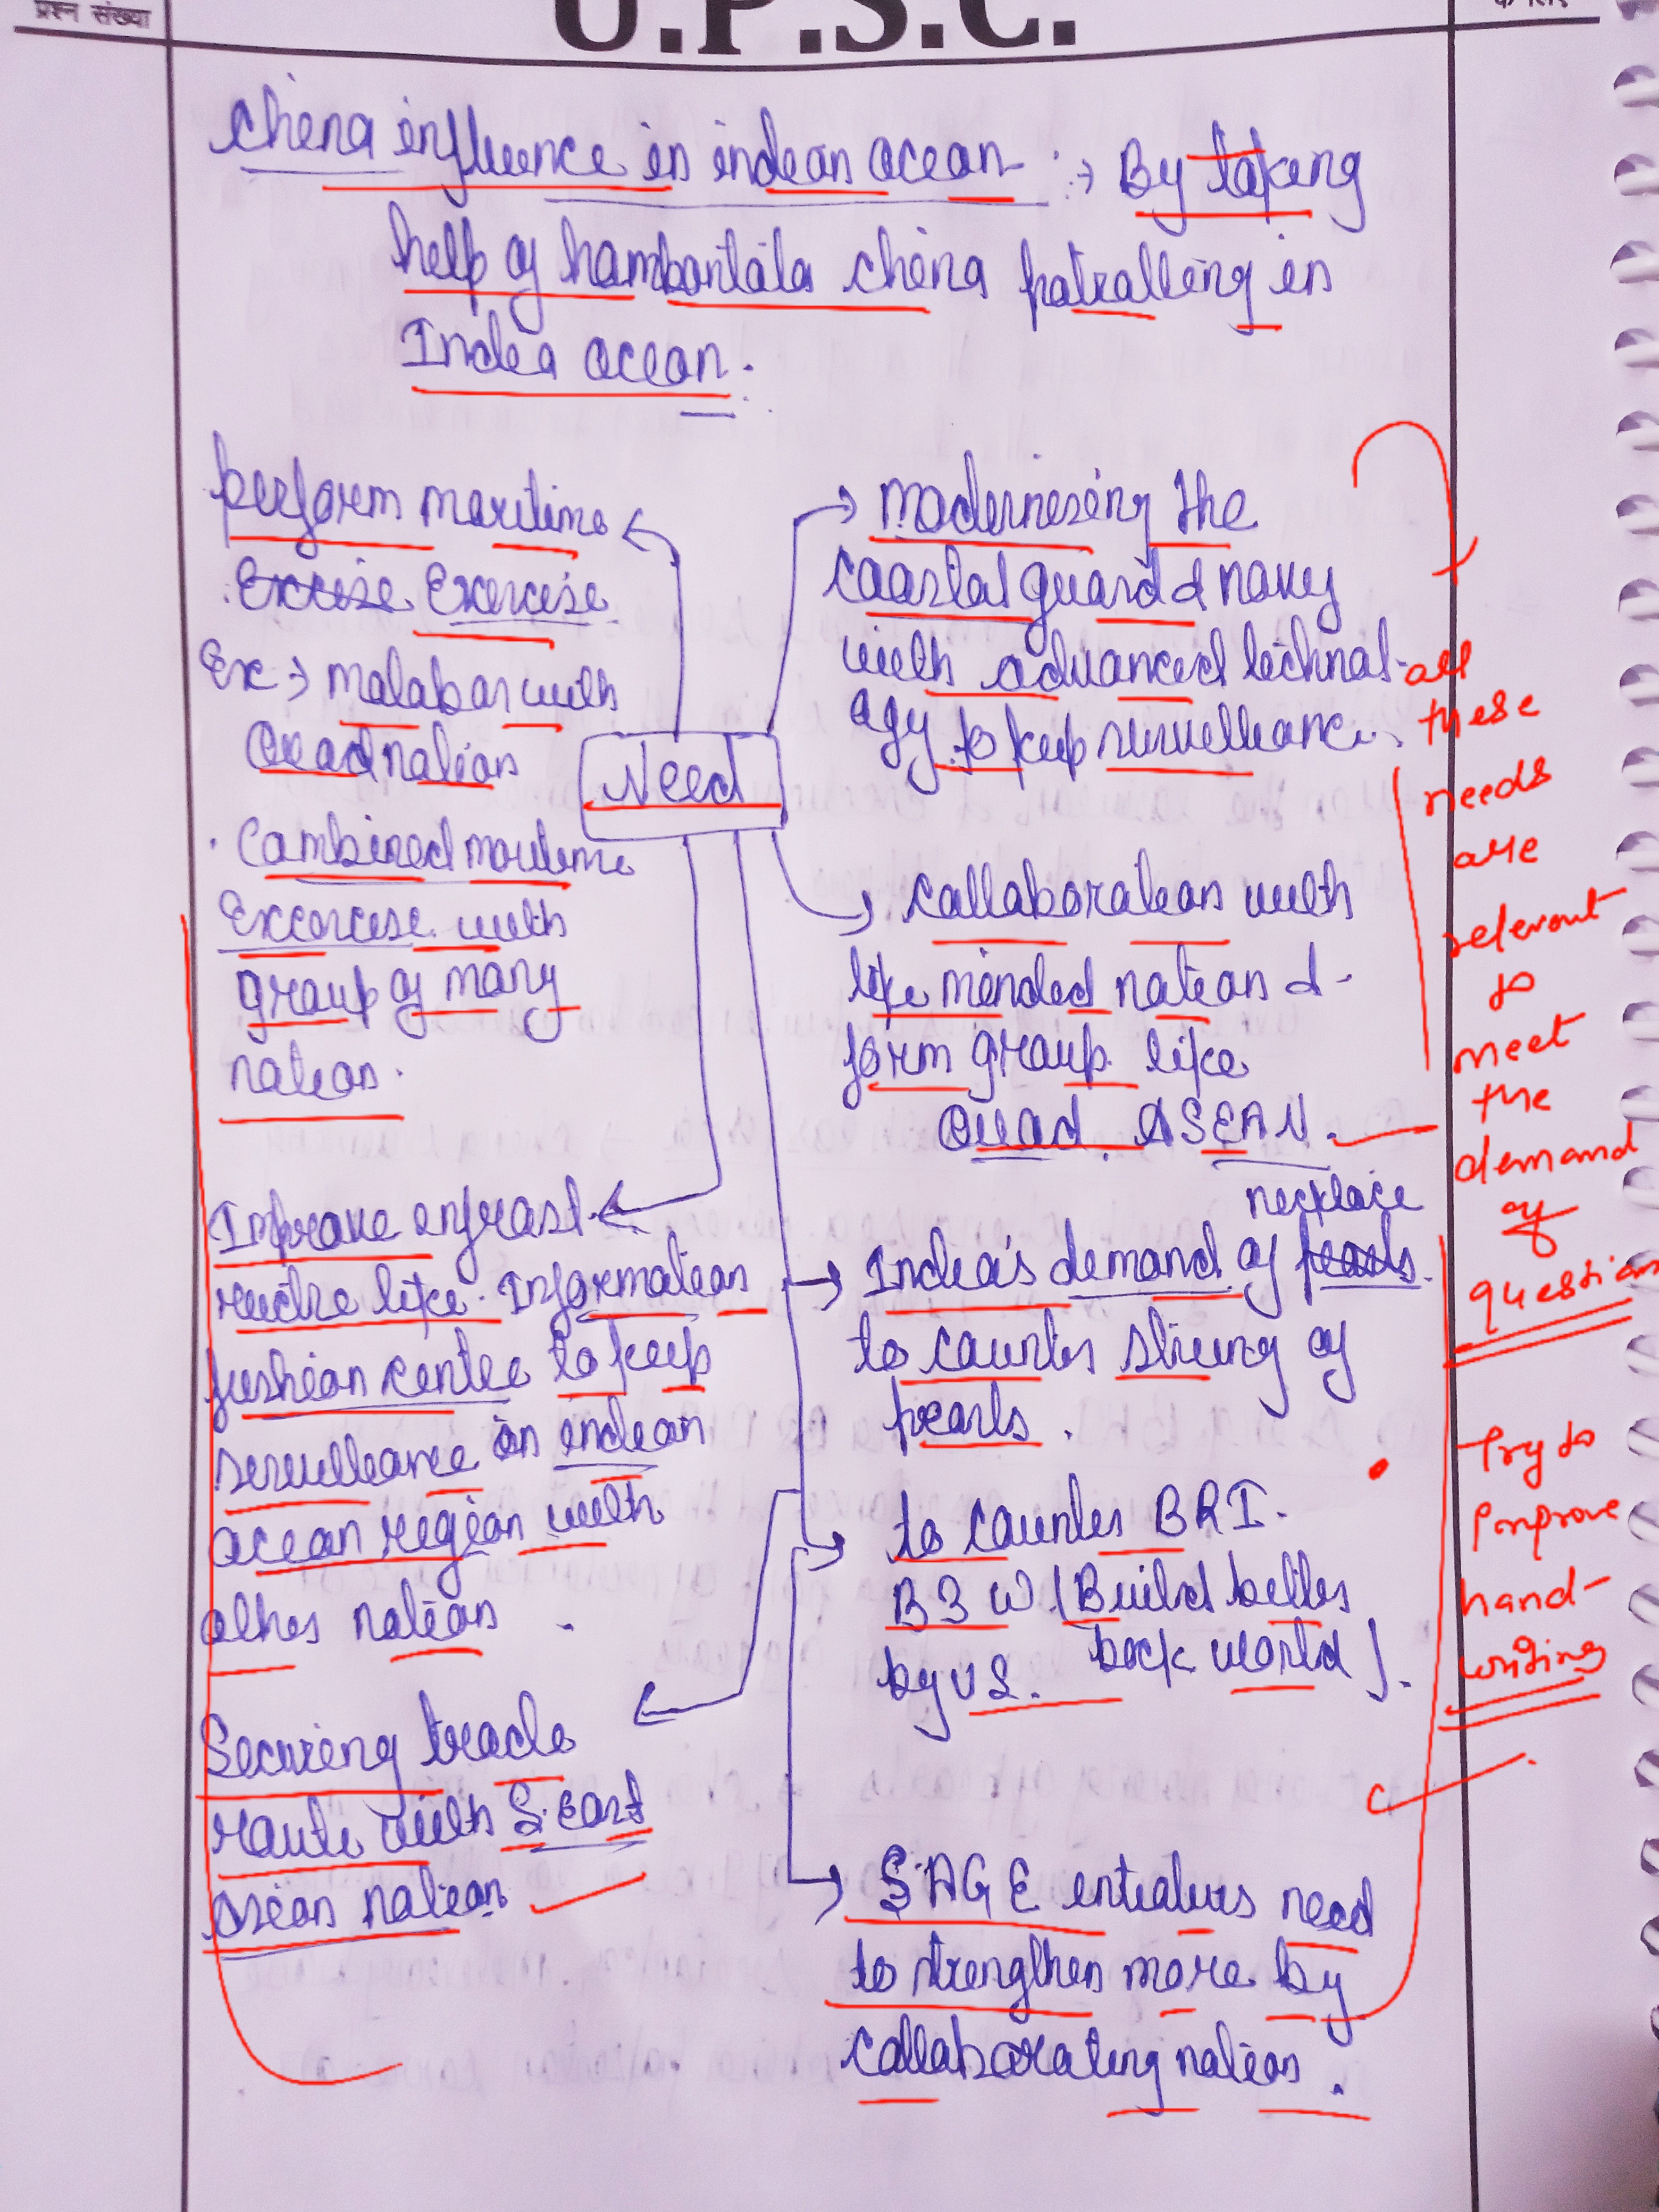 प्रश्न संख्या
U.P.S.C.
China influence in indian ocean :→ By taking
help of hambantata china patralling in
India ocean.
perform maritime
Excise Exercise
Ex → malabar with
Quad nation
Combined maritime
Excercise with
group of many
nation.
Need
modernising the
coastal guard & navy
with advanced technol-
ogy to keep surveillance.
collaboration with
like minded nation &
form group like
Quad, ASEAN.
Improve infrast-
ructre like Information
fushion centre to keep
serveillance on indian
ocean region with
other nation.
Securing trade
route with S. East
Asian nation
necklace
India's demand of pearls
to counter string of
pearls.
to counter BRI.
B3W (Build better
by US. back world).
SAGE need
to strengthen more by
collaborating nation.
all
these
needs
are
relevant
to
meet
the
demand
of
question
Try to
improve
hand-
writing